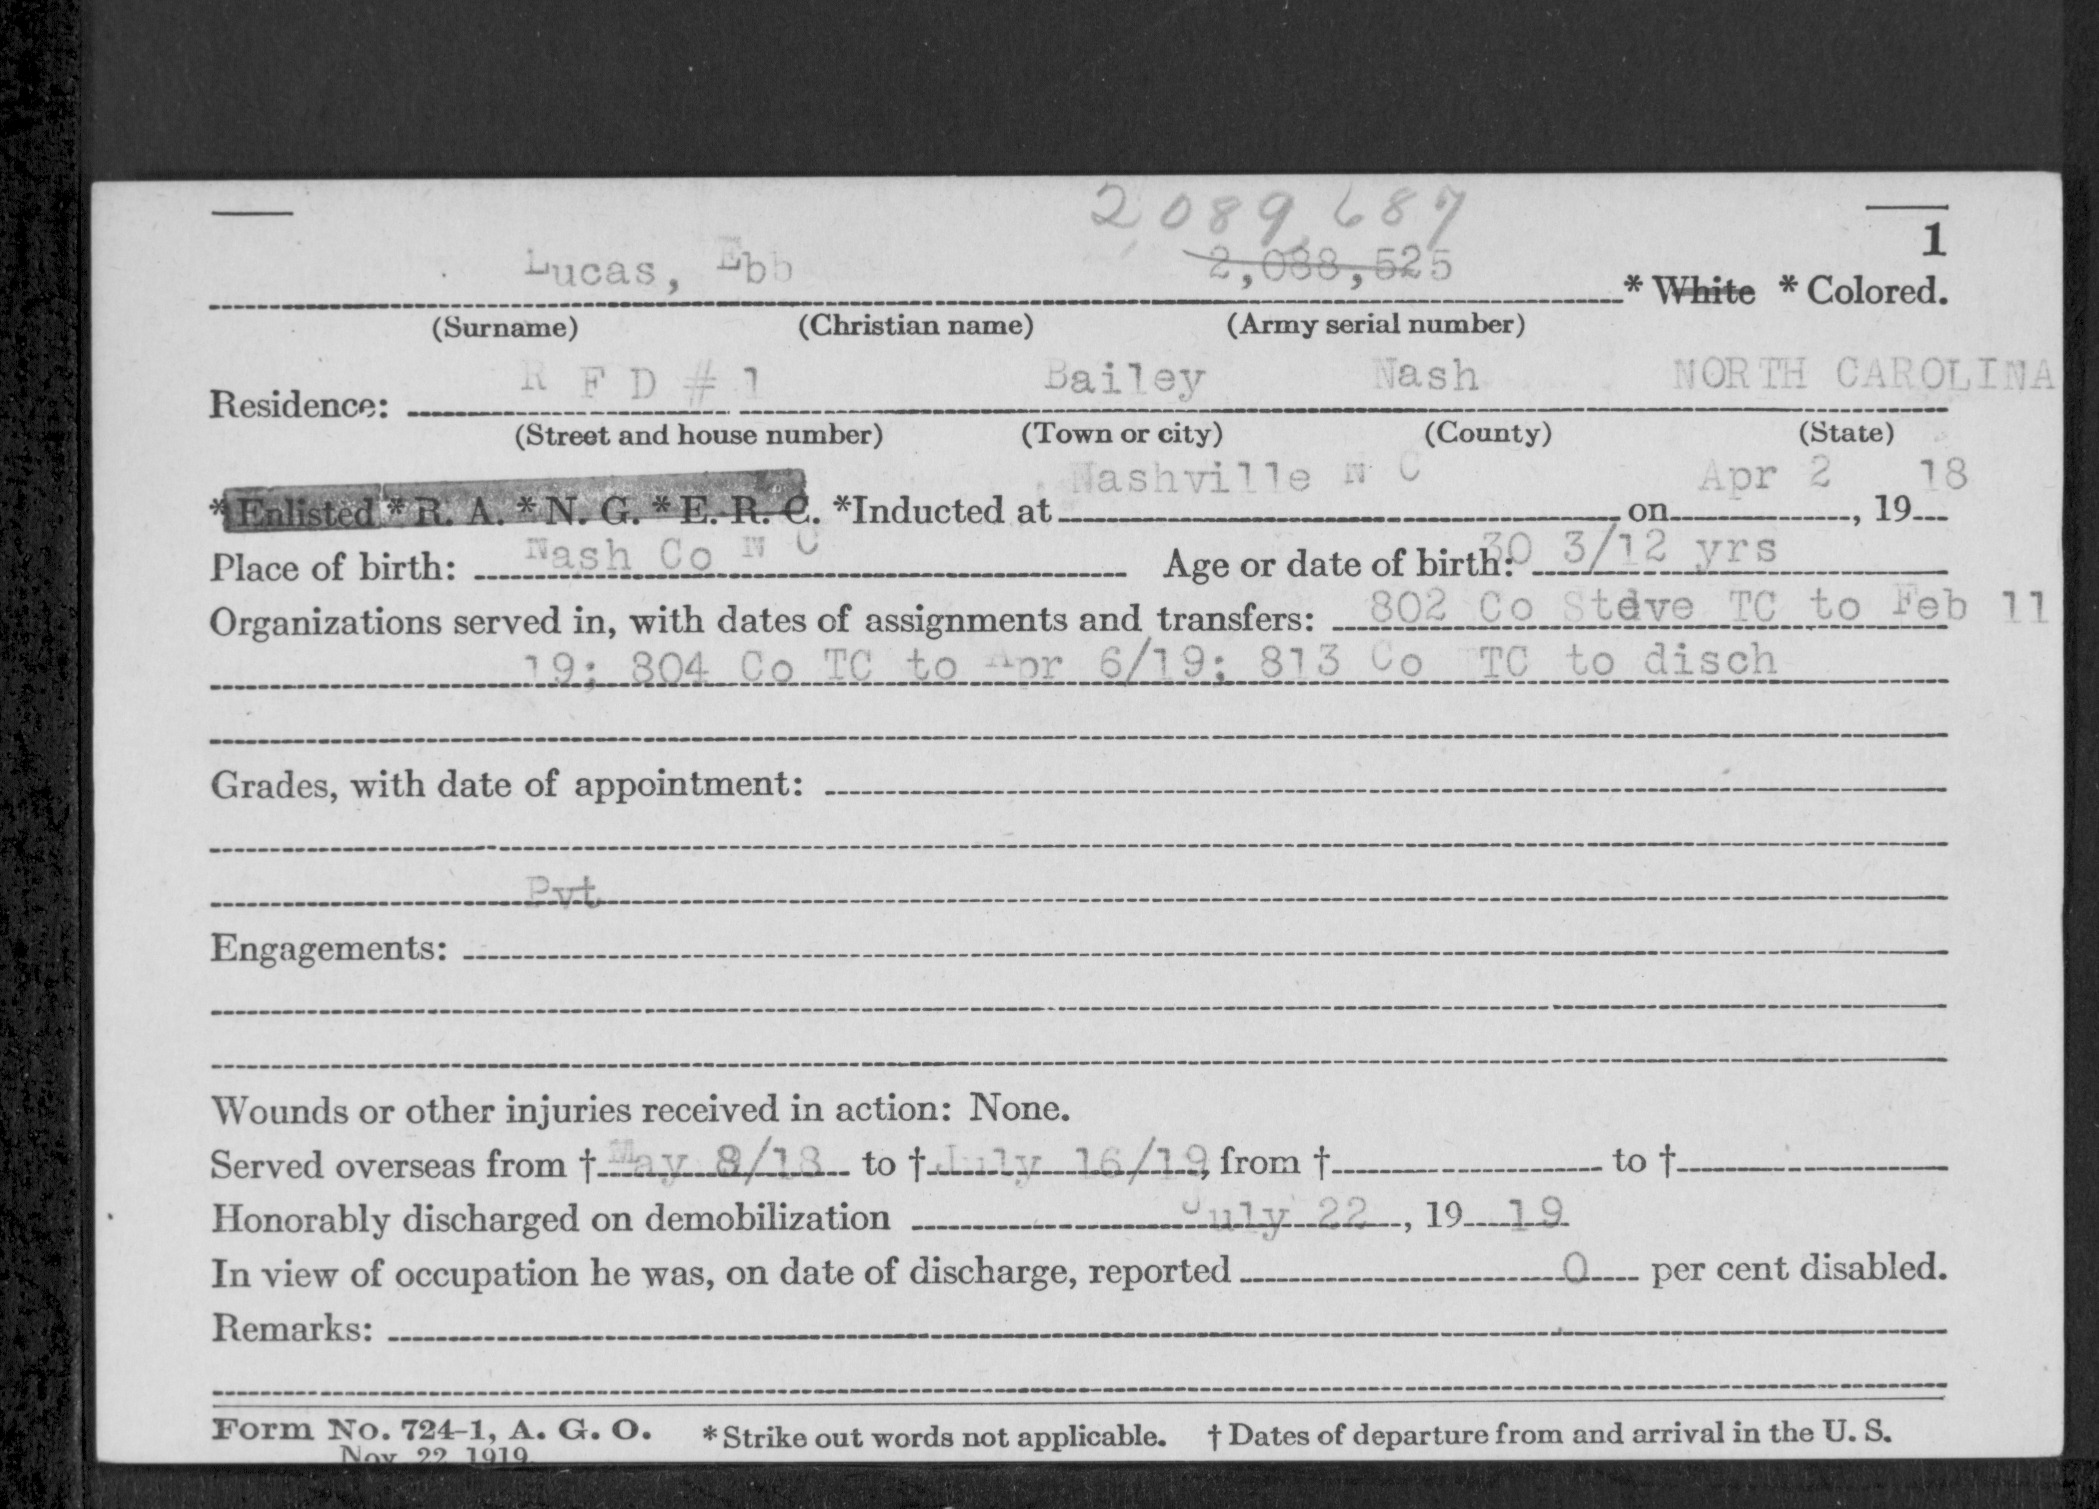 2,089,687
1
Lucas, Ebb 2,088,525 * White * Colored.
(Surname) (Christian name) (Army serial number)
Residence: R F D # 1 Bailey Nash NORTH CAROLINA
(Street and house number) (Town or city) (County) (State)
*Enlisted *R. A. *N. G. *E. R. C. *Inducted at Nashville N C on Apr 2, 19 18
Place of birth: Nash Co N C Age or date of birth: 30 3/12 yrs
Organizations served in, with dates of assignments and transfers: 802 Co Stdve TC to Feb 11
19; 804 Co TC to Apr 6/19; 813 Co TC to disch
Grades, with date of appointment:
Pvt
Engagements:
Wounds or other injuries received in action: None.
Served overseas from † May 8/18 to † July 16/19, from † to †
Honorably discharged on demobilization July 22, 19 19
In view of occupation he was, on date of discharge, reported 0 per cent disabled.
Remarks:
Form No. 724-1, A. G. O. *Strike out words not applicable. † Dates of departure from and arrival in the U. S.
Nov. 22, 1919.